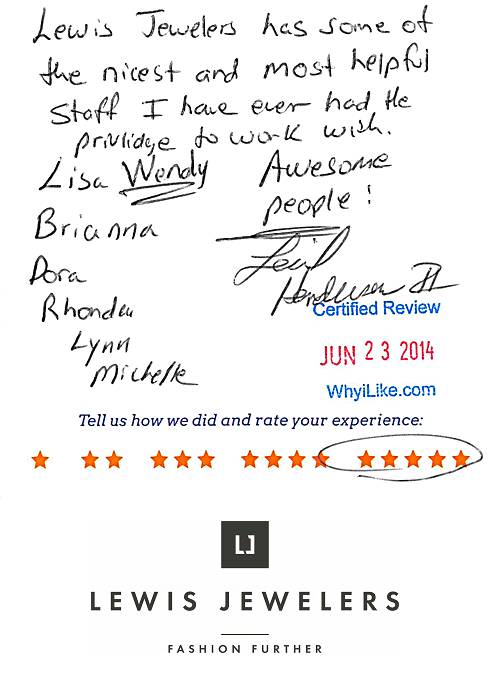 Lewis Jewelers has some of
the nicest and most helpful
staff I have ever had the
privlidge to work wish.
Lisa Wendy
Awesome
people!
Brianna
Dora
Rhonda
Lynn
Michelle
Henderson II
Certified Review
JUN 23 2014
WhyiLike.com
Tell us how we did and rate your experience:
LJ
LEWIS JEWELERS
FASHION FURTHER